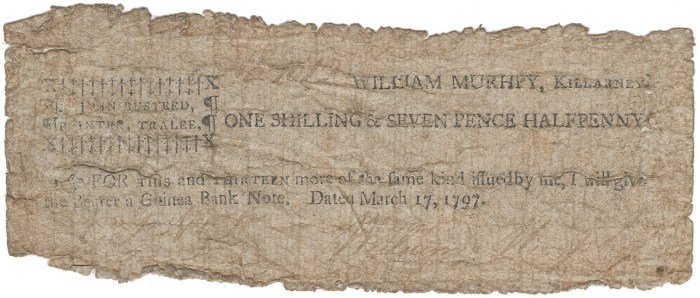 WILLIAM MURHPY, KILLARNEY.
JOHN BUSTEED,
PRINTER, TRALEE.
ONE SHILLING & SEVEN PENCE HALFPENNY
FOR THIS and THIRTEEN more of the same kind issued by me, I will give
the Bearer a Guinea Bank Note. Dated March 17, 1797.